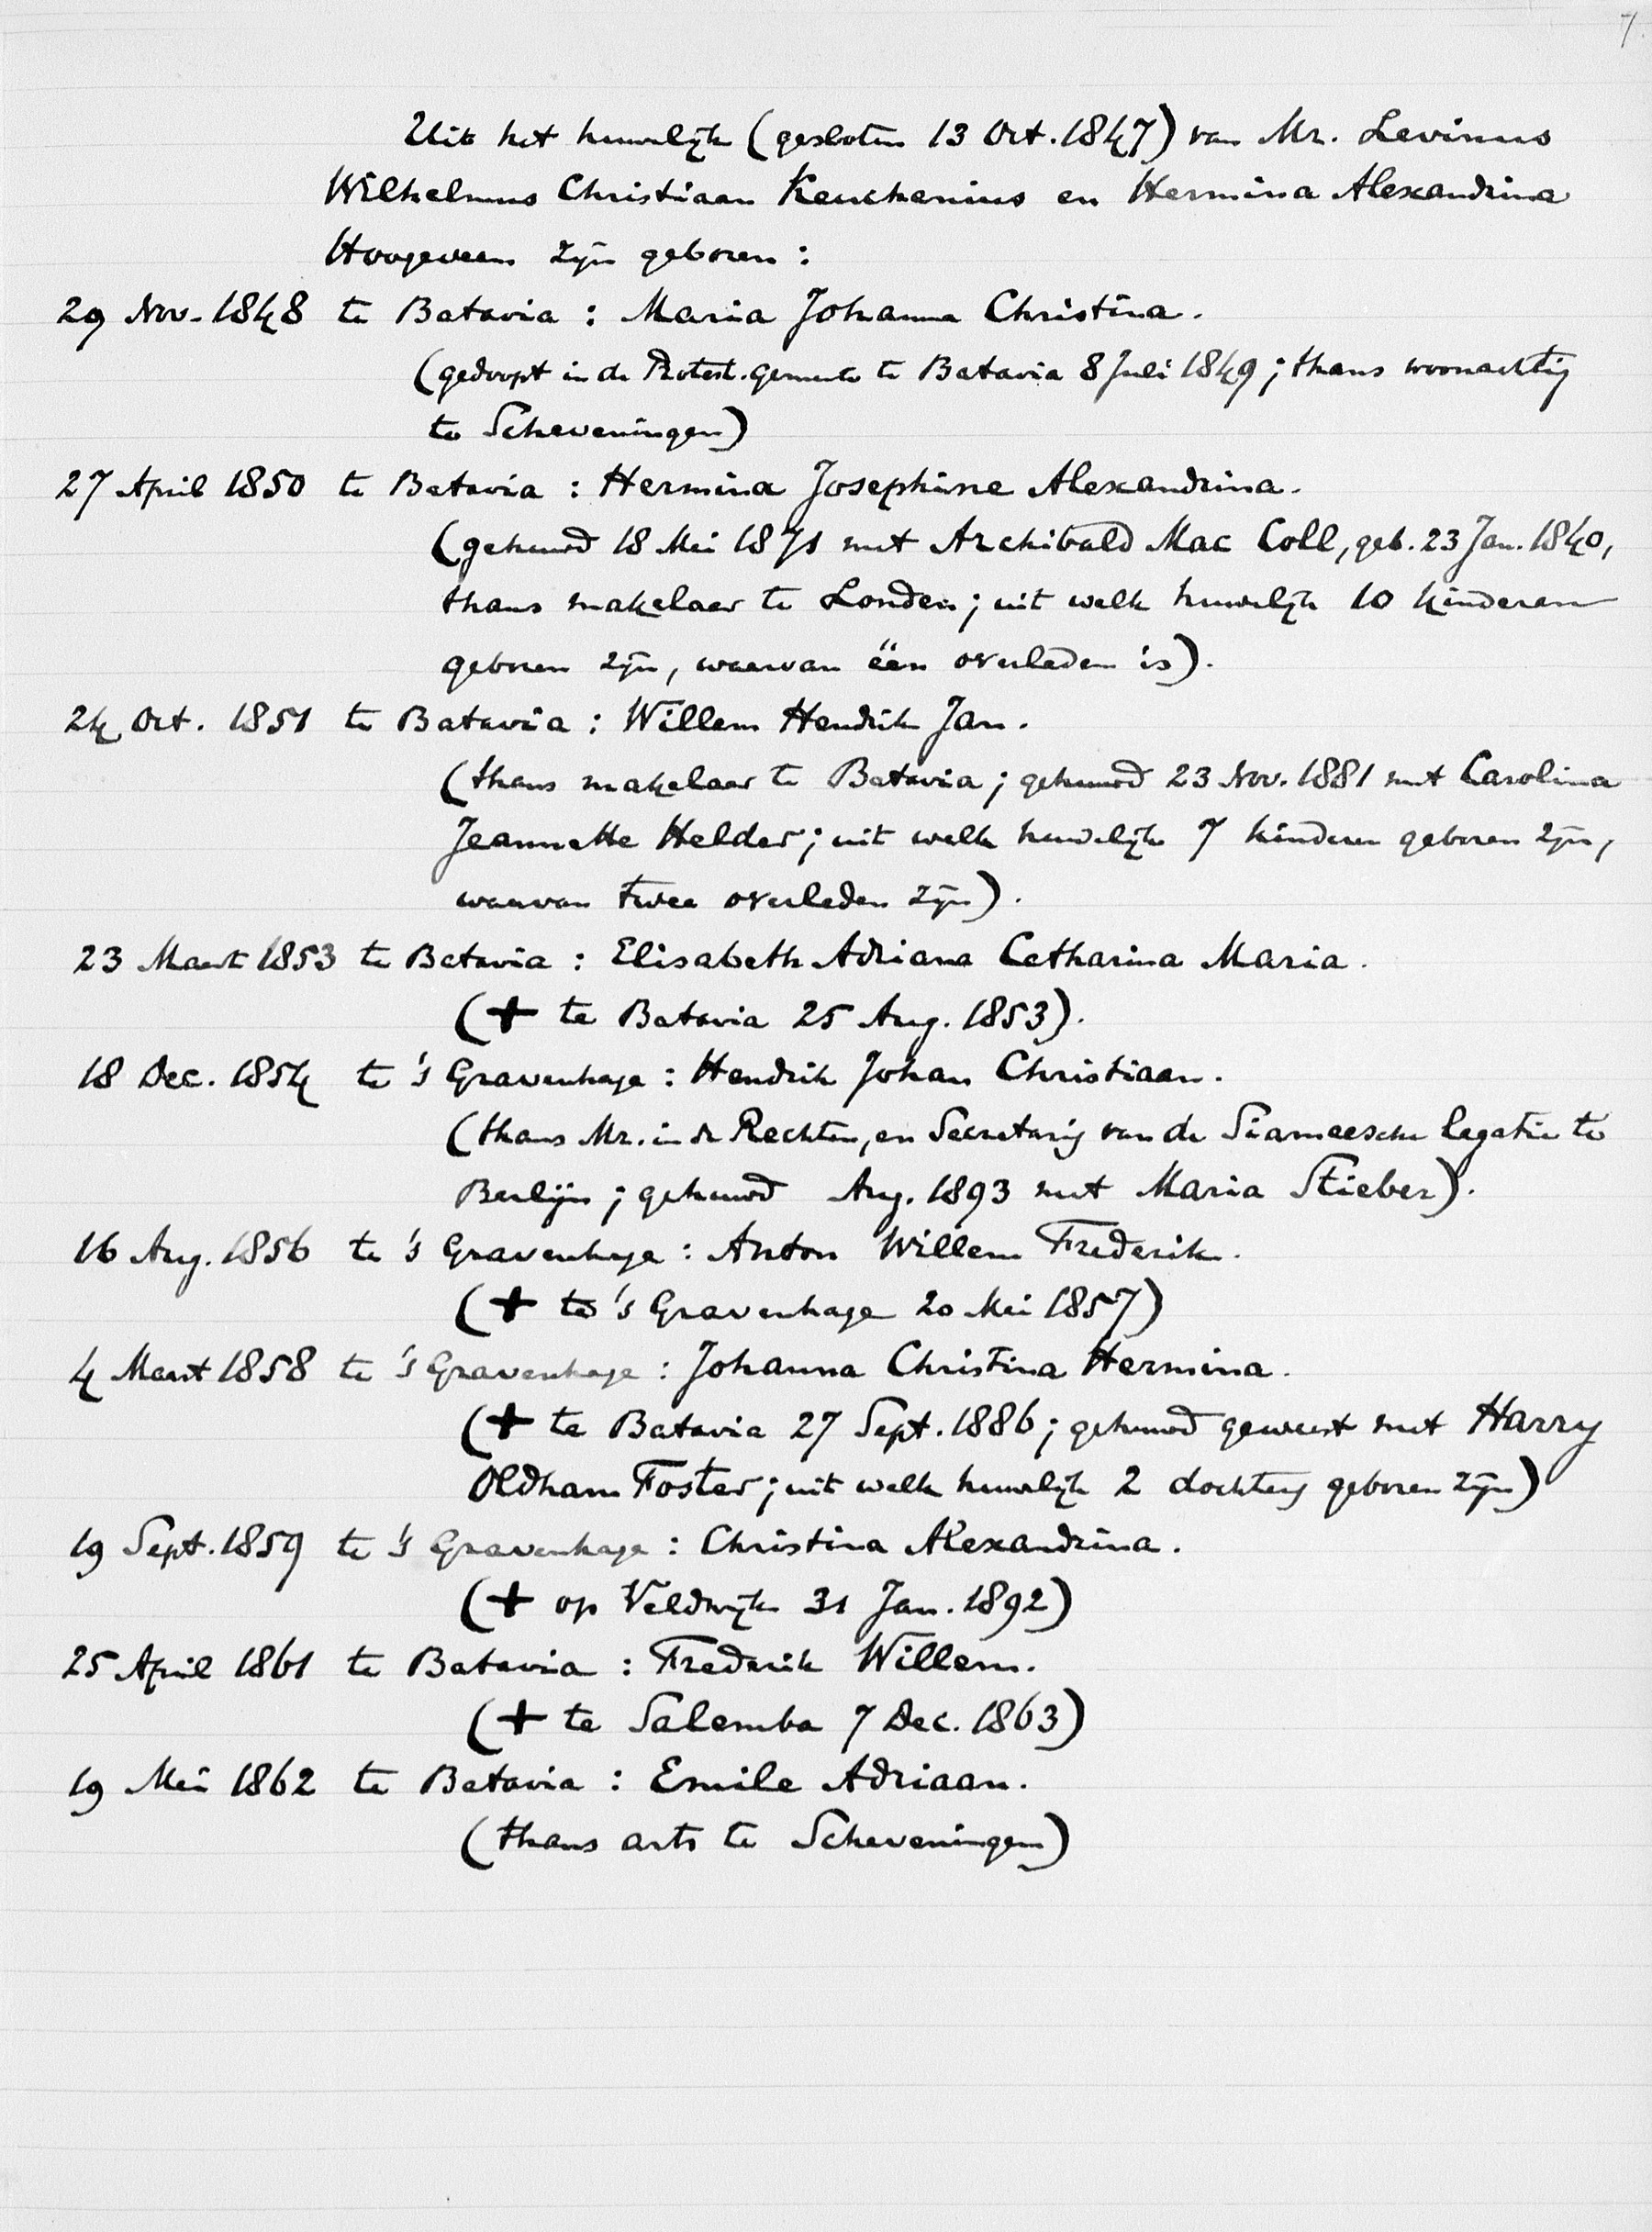 7.
Uit het huwelijk (gesloten 13 Oct. 1847) van Mr. Levinus
Wilhelmus Christiaan Keuchenius en Hermina Alexandrina
Hoogeveen zijn geboren :
29 Nov. 1848 te Batavia : Maria Johanna Christina.
(gedoopt in de Protest. gemeente te Batavia 8 Juli 1849 ; thans woonachtig
te Scheveningen)
27 April 1850 te Batavia : Hermina Josephine Alexandrina.
(gehuwd 18 Mei 1871 met Archibald Mac Coll, geb. 23 Jan. 1840,
thans makelaar te Londen ; uit welk huwelijk 10 kinderen
geboren zijn, waarvan één overleden is).
24 Oct. 1851 te Batavia : Willem Hendrik Jan.
(thans makelaar te Batavia ; gehuwd 23 Nov. 1881 met Carolina
Jeannette Helder ; uit welk huwelijk 7 kinderen geboren zijn,
waarvan twee overleden zijn).
23 Maart 1853 te Batavia : Elisabeth Adriana Catharina Maria.
(✝ te Batavia 25 Aug. 1853).
18 Dec. 1854 te 's Gravenhage : Hendrik Johan Christiaan.
(thans Mr. in de Rechten, en Secretaris van de Siameesche legatie te
Berlijn ; gehuwd Aug. 1893 met Maria Stieber).
16 Aug. 1856 te 's Gravenhage : Anton Willem Frederik.
(✝ te 's Gravenhage 20 Mei 1857)
4 Maart 1858 te 's Gravenhage : Johanna Christina Hermina.
(✝ te Batavia 27 Sept. 1886 ; gehuwd geweest met Harry
Oldham Foster ; uit welk huwelijk 2 dochters geboren zijn)
19 Sept. 1859 te 's Gravenhage : Christina Alexandrina.
(✝ op Veldwijk 31 Jan. 1892)
25 April 1861 te Batavia : Frederik Willem.
(✝ te Salemba 7 Dec. 1863)
19 Mei 1862 te Batavia : Emile Adriaan.
(thans arts te Scheveningen)